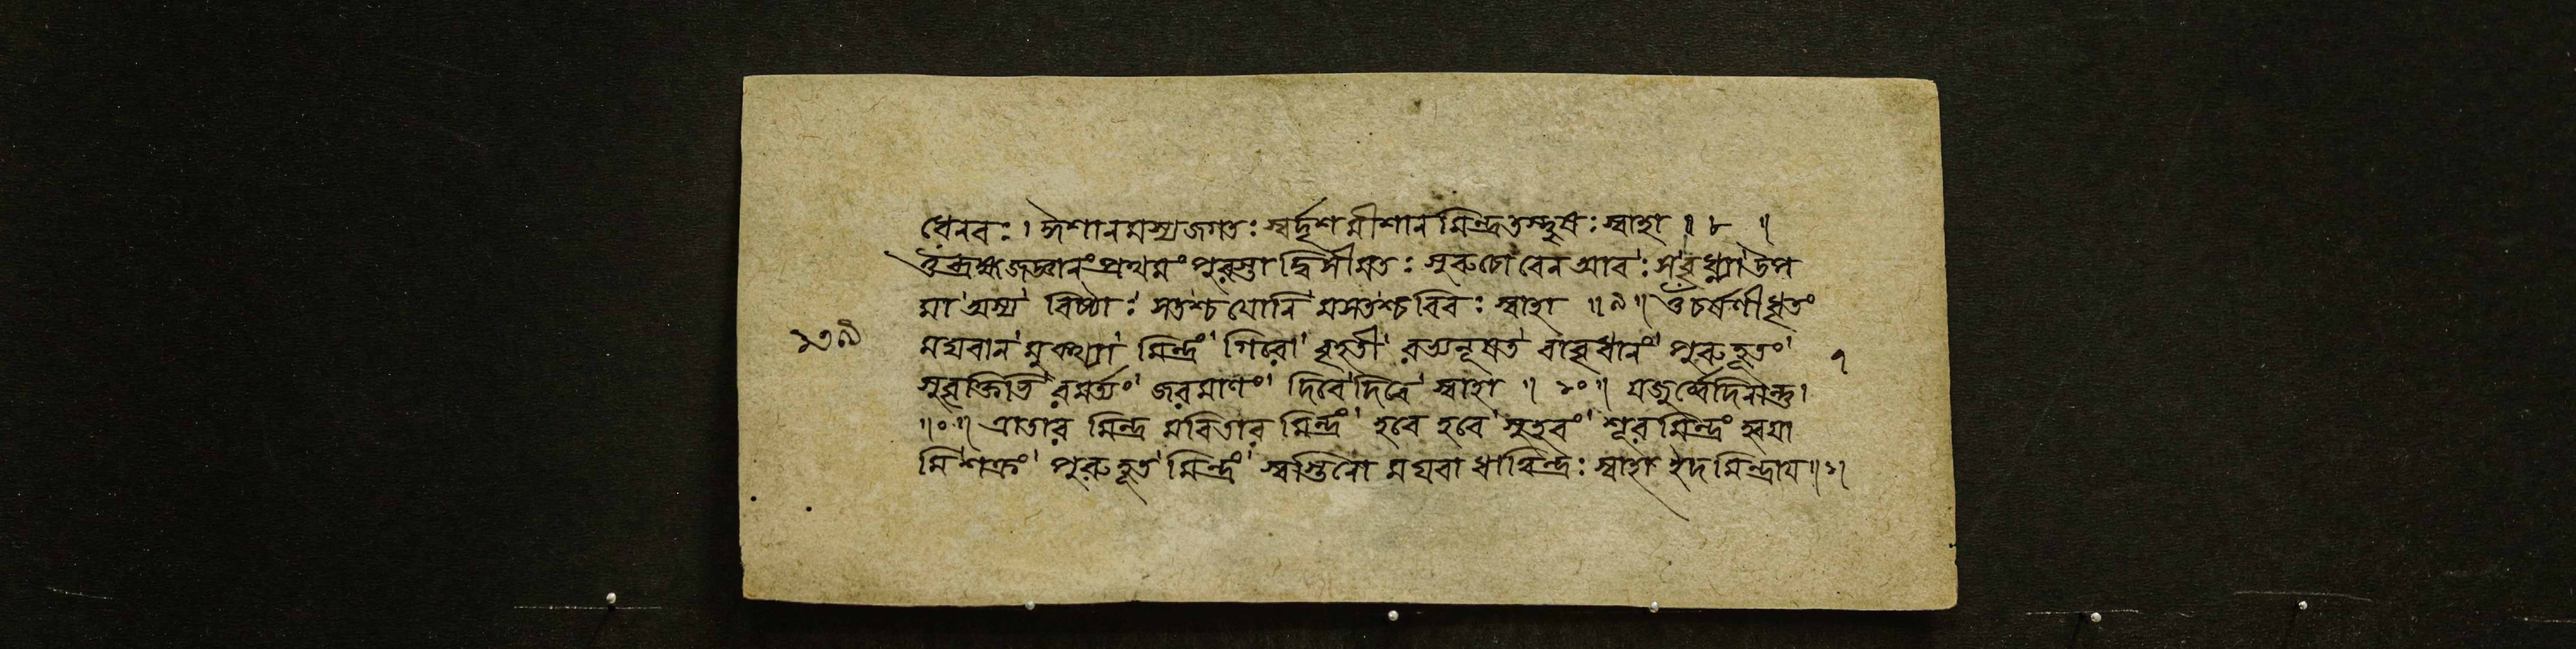 ধেনবঃ। ঈশানমস্যজগতঃ স্বর্দৃশমীশানমিন্দ্রতস্থুষঃ স্বাহা ॥ ৮ ॥
ওঁব্রহ্মজজ্ঞানং প্রথমং পুরস্তাদ্বিসীমতঃ সুরুচোবেনআবঃ সবুধ্ন্যাউপ
মাঅস্য বিষ্ঠাঃ সতশ্চ যোনিমসতশ্চবিবঃ স্বাহা ॥ ৯ ॥ ওঁচর্ষণীধৃতং
১৩৯ মঘবানমুক্থ্যা মিন্দ্রং গিরো বৃহতী রঅনূষত বাবৃধানং পুরুহূতং
সুবৃক্তিভি রমর্ত্যং জরমাণং দিবেদিবে স্বাহা ॥ ১০ ॥ যজুর্ব্বেদিনান্তু।
॥০॥ ত্রাতার মিন্দ্র মবিতার মিন্দ্রং হবে হবে সুহবং শূরমিন্দ্রং হ্বয়া
মিশক্রং পুরুহূত মিন্দ্রং স্বস্তিনো মঘবা ধাত্বিন্দ্রঃ স্বাহা ইদমিন্দ্রায॥১॥